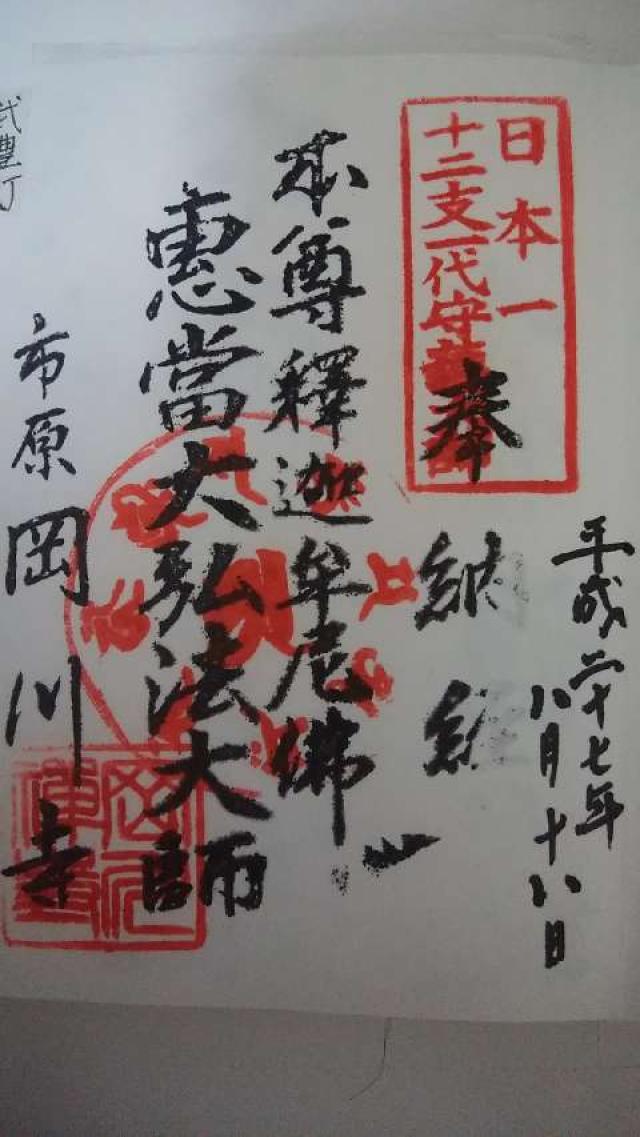 日本一
十二支一代守
奉納経
平成二十七年
八月十八日
本尊釋迦牟尼佛
恵當大弘法大師
市原岡川寺
武豊丁